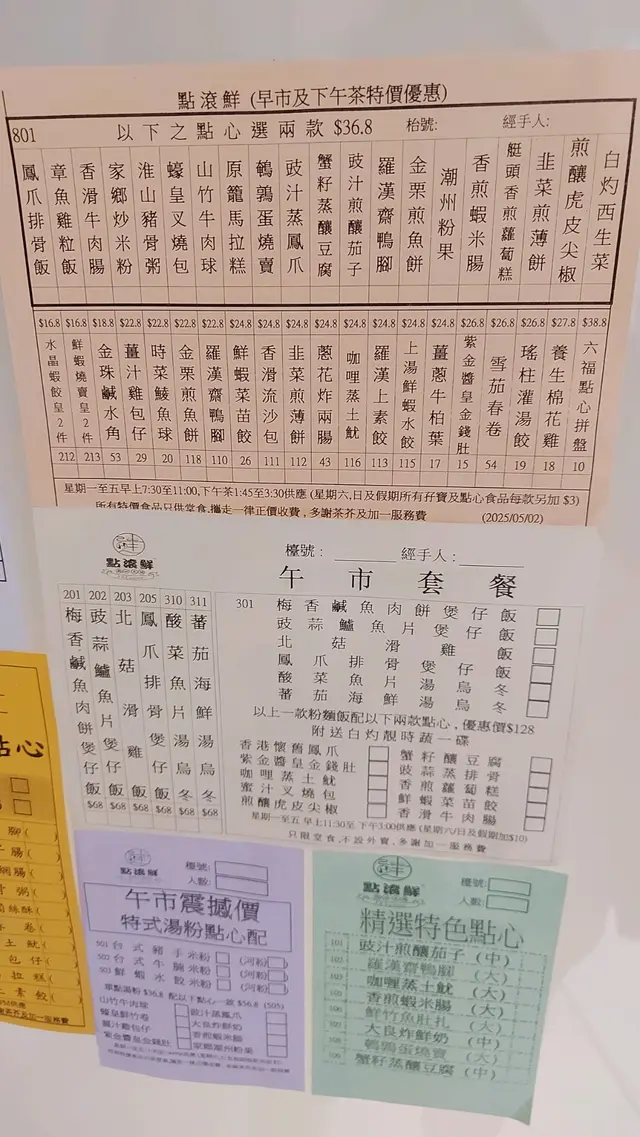 點滾鮮 (早市及下午茶特價優惠)
801 以下之點心選兩款 $36.8 枱號: 經手人:
鳳爪排骨飯
章魚雞粒飯
香滑牛肉腸
家鄉炒米粉
淮山豬骨粥
蠔皇叉燒包
山竹牛肉球
原籠馬拉糕
鵪鶉蛋燒賣
豉汁蒸鳳爪
蟹籽蒸釀豆腐
豉汁煎釀茄子
羅漢齋鴨腳
金栗煎魚餅
潮州粉果
香煎蝦米腸
艇頭香煎蘿蔔糕
韭菜煎薄餅
煎釀虎皮尖椒
白灼西生菜
$16.8 水晶蝦餃皇2件 212
$16.8 鮮蝦燒賣皇2件 213
$18.8 金珠鹹水角 53
$22.8 薑汁雞包仔 29
$22.8 時菜鯪魚球 20
$22.8 金栗煎魚餅 118
$22.8 羅漢齋鴨腳 110
$24.8 鮮蝦菜苗餃 26
$24.8 香滑流沙包 111
$24.8 韭菜煎薄餅 112
$24.8 蔥花炸兩腸 43
$24.8 咖哩蒸土魷 116
$24.8 羅漢上素餃 113
$24.8 上湯鮮蝦水餃 115
$24.8 薑蔥牛柏葉 17
$26.8 紫金醬皇金錢肚 15
$26.8 雪茄春卷 54
$26.8 瑤柱灌湯餃 19
$27.8 養生棉花雞 18
$38.8 六福點心拼盤 10
星期一至五早上7:30至11:00,下午茶1:45至3:30供應 (星期六,日及假期所有孖寶及點心食品每款另加 $3)
所有特價食品只供堂食,攜走一律正價收費,多謝茶芥及加一服務費 (2025/05/02)
點滾鮮
檯號: 經手人:
午市套餐
201 梅香鹹魚肉餅煲仔飯 $68
202 豉蒜鱸魚片煲仔飯 $68
203 北菇滑雞飯 $68
205 鳳爪排骨煲仔飯 $68
310 酸菜魚片湯烏冬 $68
311 蕃茄海鮮湯烏冬 $68
301 梅香鹹魚肉餅煲仔飯
豉蒜鱸魚片煲仔飯
北菇滑雞飯
鳳爪排骨煲仔飯
酸菜魚片湯烏冬
蕃茄海鮮湯烏冬
以上一款粉麵飯配以下兩款點心,優惠價$128
附送白灼靚時蔬一碟
香港懷舊鳳爪
紫金醬皇金錢肚
咖哩蒸土魷
蜜汁叉燒包
煎釀虎皮尖椒
蟹籽釀豆腐
豉蒜蒸排骨
香煎蘿蔔糕
鮮蝦菜苗餃
香滑牛肉腸
星期一至五 早上11:30至 下午3:00供應 (星期六/日及假期加$10)
只限堂食,不設外賣,多謝加一服務費
點心
點滾鮮
檯號:
人數:
午市震撼價
特式湯粉點心配
501 台式豬手米粉 (河粉)
502 台式牛腩米粉 (河粉)
503 鮮蝦水餃米粉 (河粉)
單點湯粉 $36.8 配以下點心一款 $56.8 (505)
山竹牛肉球
薑汁雞包仔
紫金醬皇金錢肚
豉汁蒸鳳爪
大良炸鮮奶
香煎蝦米腸
家鄉潮州粉果
點滾鮮
檯號:
人數:
精選特色點心
豉汁煎釀茄子 (中)
羅漢齋鴨腳 (大)
咖哩蒸土魷 (大)
香煎蝦米腸 (大)
鮮竹魚肚扎 (大)
大良炸鮮奶 (中)
鵪鶉蛋燒賣 (大)
蟹籽蒸釀豆腐 (中)